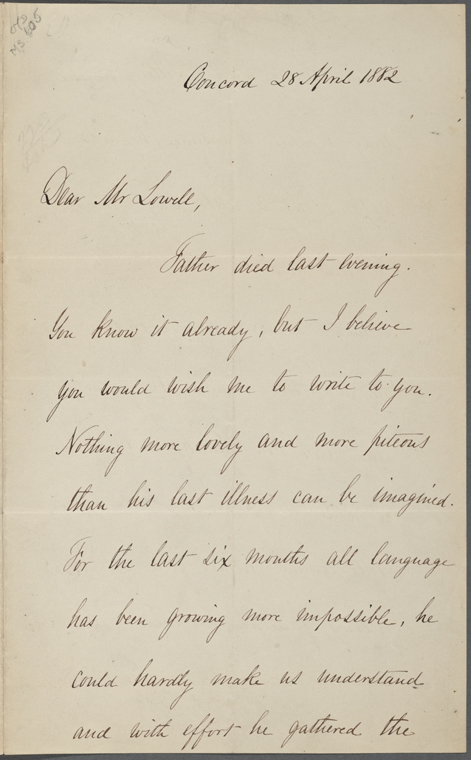 Concord 28 April 1882
Dear Mr Lowell,
Father died last evening.
You know it already, but I believe
you would wish me to write to you.
Nothing more lovely and more piteous
than his last illness can be imagined.
For the last six months all language
has been growing more impossible, he
could hardly make us understand
and with effort he gathered the